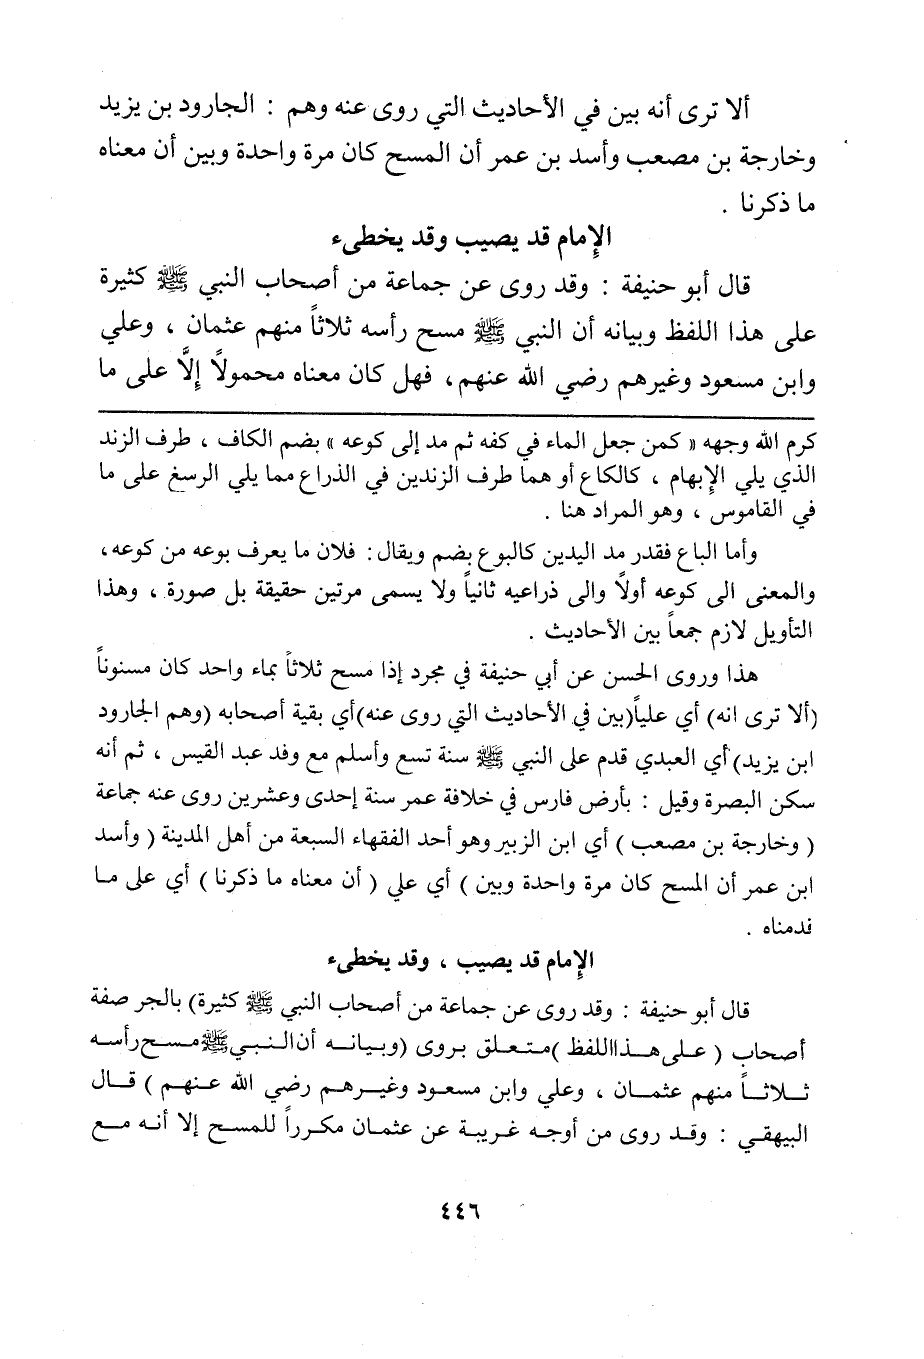 ألا ترى أنه بين في الأحاديث التي روى عنه وهم : الجارود بن يزيد
وخارجة بن مصعب وأسد بن عمر أن المسح كان مرة واحدة وبين أن معناه
ما ذكرنا .
الإمام قد يصيب وقد يخطىء
قال أبو حنيفة : وقد روى عن جماعة من أصحاب النبي ﷺ كثيرة
على هذا اللفظ وبيانه أن النبي ﷺ مسح رأسه ثلاثاً منهم عثمان ، وعلي
وابن مسعود وغيرهم رضي الله عنهم ، فهل كان معناه محمولاً إلَّا على ما
كرم الله وجهه « كمن جعل الماء في كفه ثم مد إلى كوعه » بضم الكاف ، طرف الزند
الذي يلي الإبهام ، كالكاع أو هما طرف الزندين في الذراع مما يلي الرسغ على ما
في القاموس ، وهو المراد هنا .
وأما الباع فقدر مد اليدين كالبوع بضم ويقال : فلان ما يعرف بوعه من كوعه ،
والمعنى الى كوعه أولاً والى ذراعيه ثانياً ولا يسمى مرتين حقيقة بل صورة ، وهذا
التأويل لازم جمعاً بين الأحاديث .
هذا وروى الحسن عن أبي حنيفة في مجرد إذا مسح ثلاثاً بماء واحد كان مسنوناً
(ألا ترى انه) أي علياً(بين في الأحاديث التي روى عنه)أي بقية أصحابه (وهم الجارود
ابن يزيد) أي العبدي قدم على النبي ﷺ سنة تسع وأسلم مع وفد عبد القيس ، ثم أنه
سكن البصرة وقيل : بأرض فارس في خلافة عمر سنة إحدى وعشرين روى عنه جماعة
( وخارجة بن مصعب ) أي ابن الزبير وهو أحد الفقهاء السبعة من أهل المدينة ( وأسد
ابن عمر أن المسح كان مرة واحدة وبين ) أي علي ( أن معناه ما ذكرنا ) أي على ما
قدمناه .
الإمام قد يصيب ، وقد يخطىء
قال أبو حنيفة : وقد روى عن جماعة من أصحاب النبي ﷺ كثيرة) بالجر صفة
أصحاب ( على هذا اللفظ )متعلق بروى (وبيانه أن النبي ﷺ مسح رأسه
ثلاثاً منهم عثمان ، وعلي وابن مسعود وغيرهم رضي الله عنهم ) قال
البيهقي : وقد روى من أوجه غريبة عن عثمان مكرراً للمسح إلا أنه مع
٤٤٦